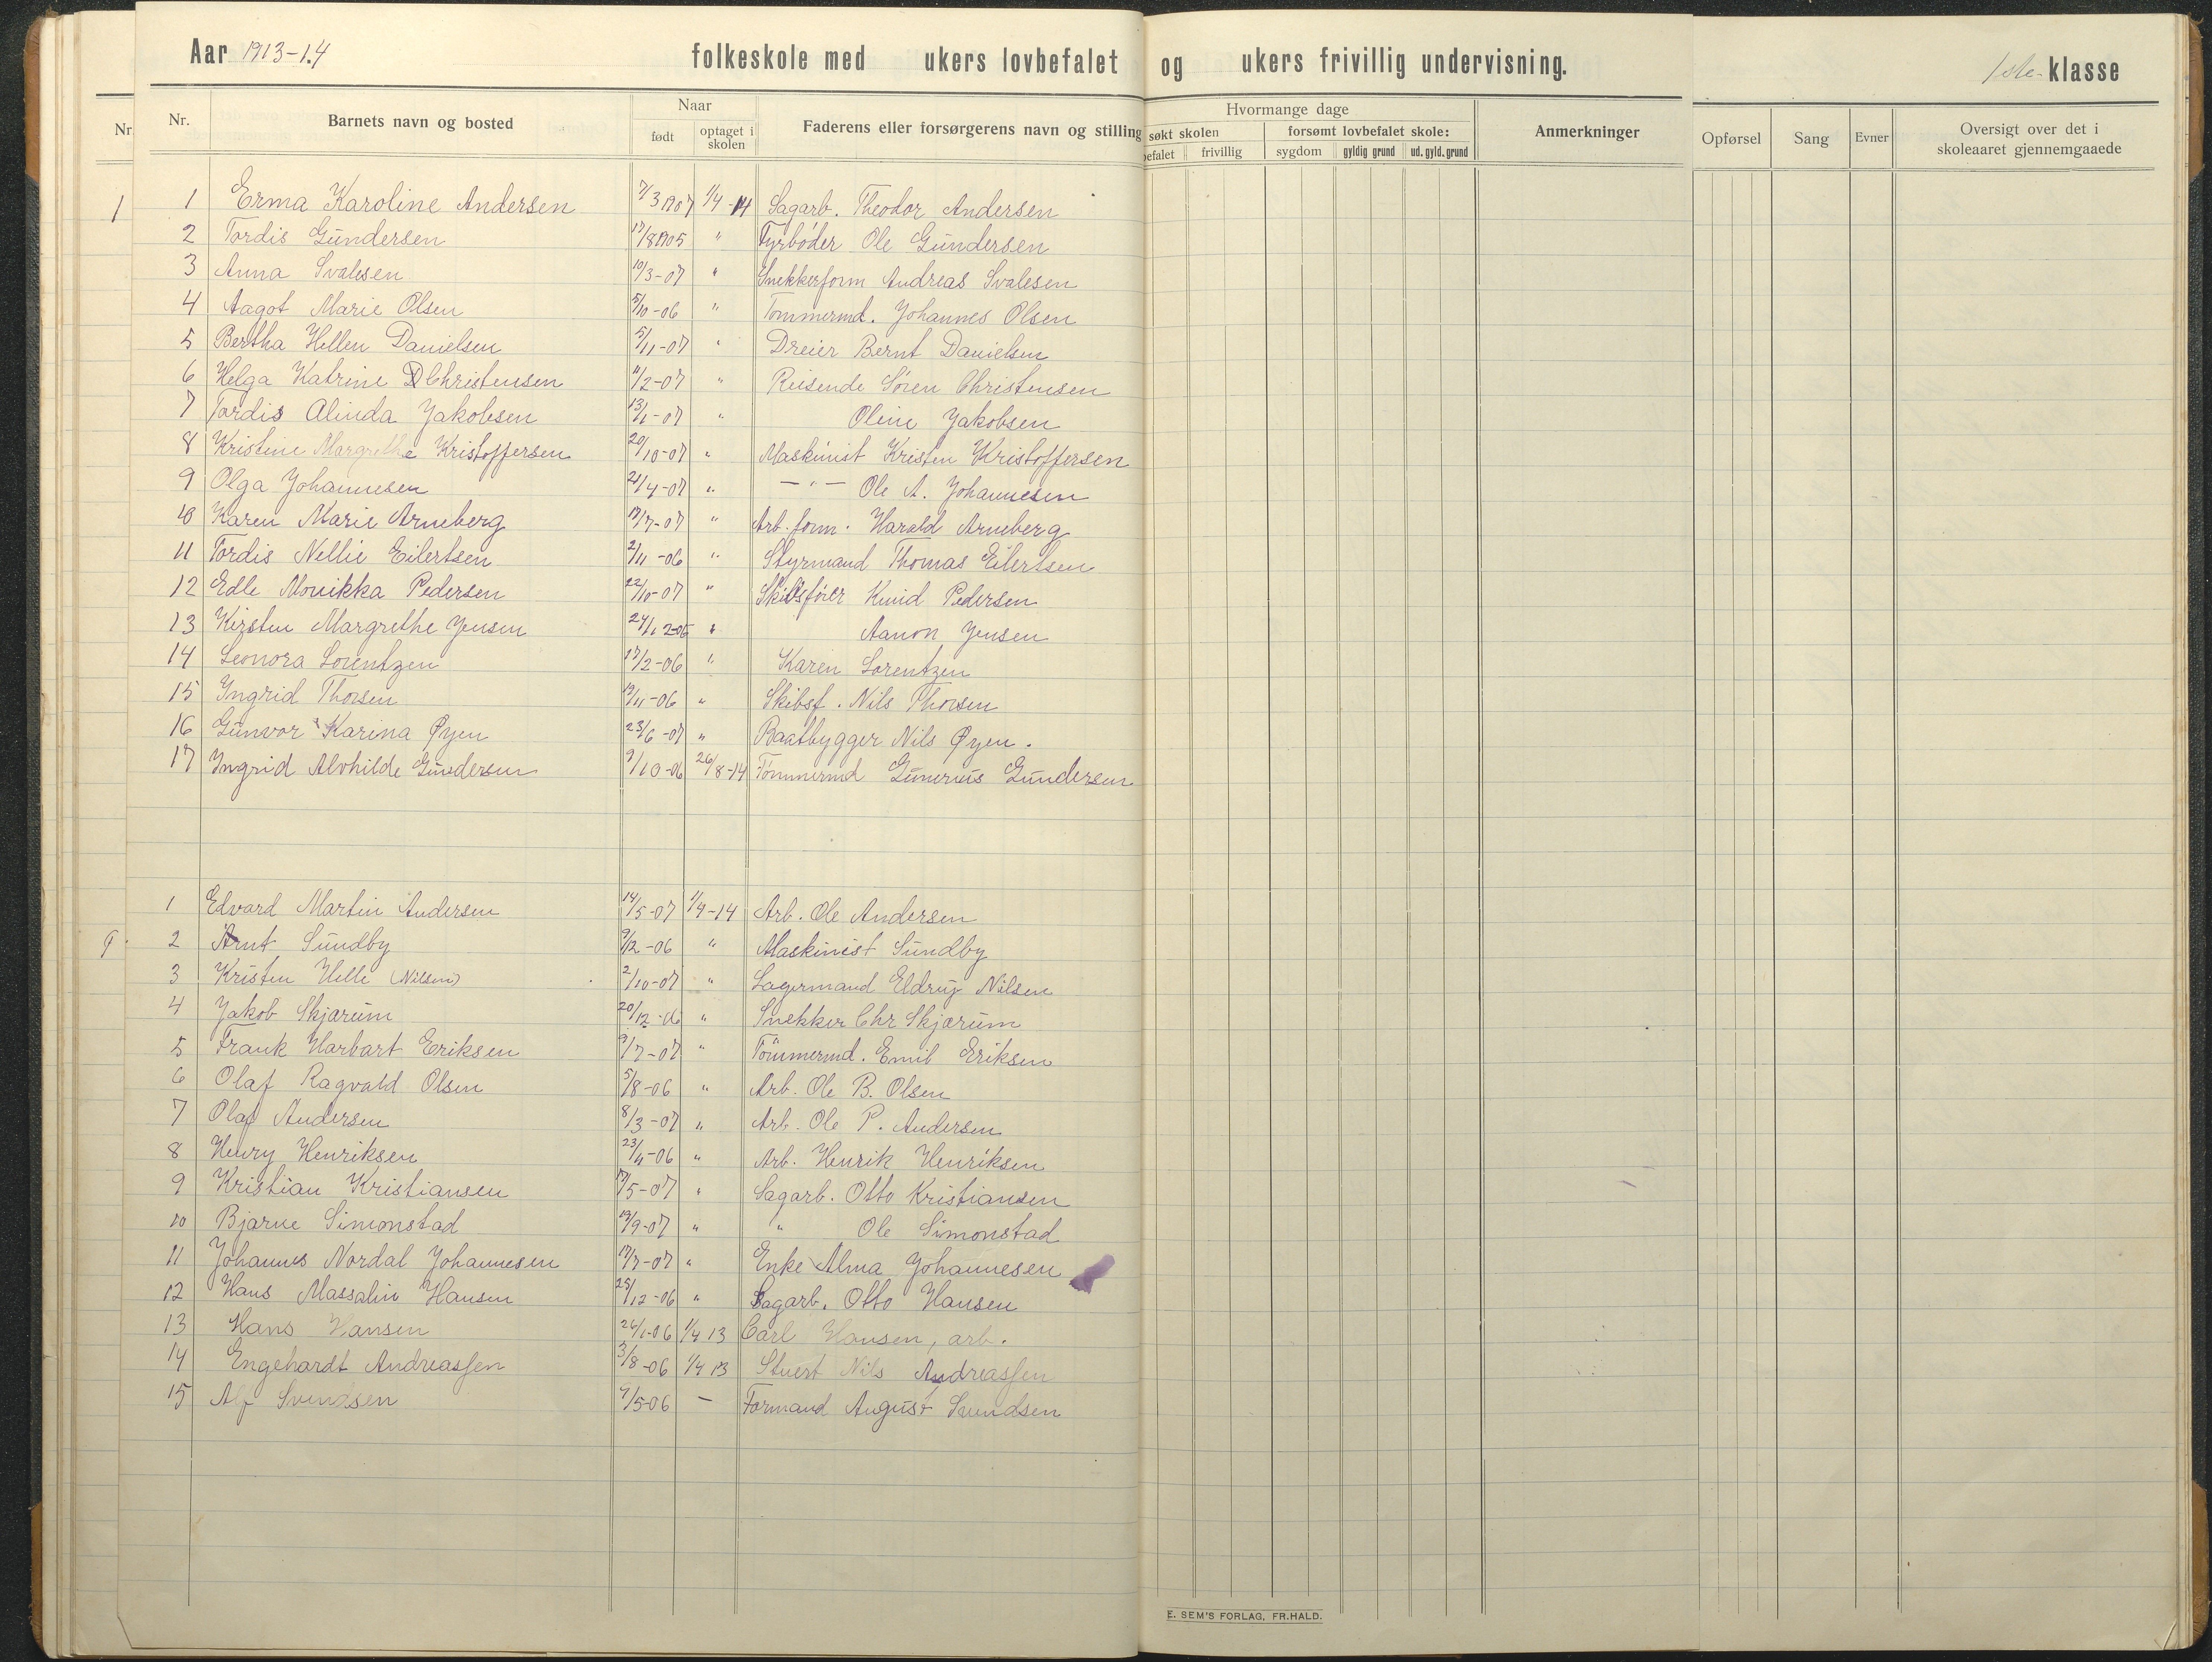 Aar 1913-14 folkeskole med ukers lovbefalet og ukers frivillig undervisning. 1ste klasse
Nr. Nr. Barnets navn og bosted Naar født optaget i skolen Faderens eller forsørgerens navn og stilling Hvormange dage søkt skolen befalet frivillig forsømt lovbefalet skole: sygdom gyldig grund ud. gyld. grund Anmerkninger Opførsel Sang Evner Oversigt over det i skoleaaret gjennemgaaede
1 1 Erma Karoline Andersen 7/3 1907 1/4-14 Sagarb. Theodor Andersen
2 Tordis Gundersen 17/8 1905 " Fyrbøder Ole Gundersen
3 Anna Svalesen 10/3-07 " Snekkerform Andreas Svalesen
4 Aagot Marie Olsen 5/10-06 " Tømmermd. Johannes Olsen
5 Bertha Hellen Danielsen 5/11-07 " Dreier Bernt Danielsen
6 Helga Katrine Christensen 11/2-07 " Reisende Søren Christensen
7 Tordis Alinda Jakobsen 13/1-07 " Oline Jakobsen
8 Kristine Margrethe Kristoffersen 20/10-07 " Maskinist Kristen Kristoffersen
9 Olga Johannesen 21/4-07 " — " — Ole A. Johannesen
10 Karen Marie Arneberg 17/7-07 " Arb. form. Harald Arneberg
11 Tordis Nellie Eilertsen 2/11-06 " Styrmand Thomas Eilertsen
12 Edle Monikka Pedersen 22/10-07 " Skibsfører Knud Pedersen
13 Kirsten Margrethe Jensen 24/12-05 " Aanon Jensen
14 Leonora Lorentzen 17/2-06 " Karen Lorentzen
15 Ingrid Thorsen 19/11-06 " Skibsf. Nils Thorsen
16 Gunvor Karina Øyen 23/6-07 " Baatbygger Nils Øyen.
17 Ingrid Alvhilde Gundersen 9/10-06 26/8-14 Tømmermd Gunerius Gundersen
1 Edvard Martin Andersen 14/5-07 1/4-14 Arb. Ole Andersen
9 2 Arnt Sundby 9/12-06 " Maskinist Sundby
3 Kristen Helle (Nilsen) 2/10-07 " Lagermand Nilsen
4 Jakob Skjærum 20/12-06 " Snekker Chr Skjærum
5 Frank Harbart Eriksen 9/7-07 " Tømmermd. Emil Eriksen
6 Olaf Ragvald Olsen 5/8-06 " Arb. Ole B. Olsen
7 Olaf Andersen 8/3-07 " Arb. Ole P. Andersen
8 Henry Henriksen 23/4-06 " Arb. Henrik Henriksen
9 Kristian Kristiansen 17/5-07 " Sagarb. Otto Kristiansen
10 Bjarne Simonstad 19/9-07 " " Ole Simonstad
11 Johannes Nordal Johannesen 17/7-07 " Enke Alma Johannesen
12 Hans Massalin Hansen 25/12-06 " Sagarb. Otto Hansen
13 Hans Hansen 26/1-06 1/4 13 Carl Hansen, arb.
14 Engehardt Andreassen 3/8-06 1/4 13 Stuert Nils Andreassen
15 Alf Svendsen 9/5-06 — Formand August Svendsen
E. SEM'S FORLAG, FR.HALD.